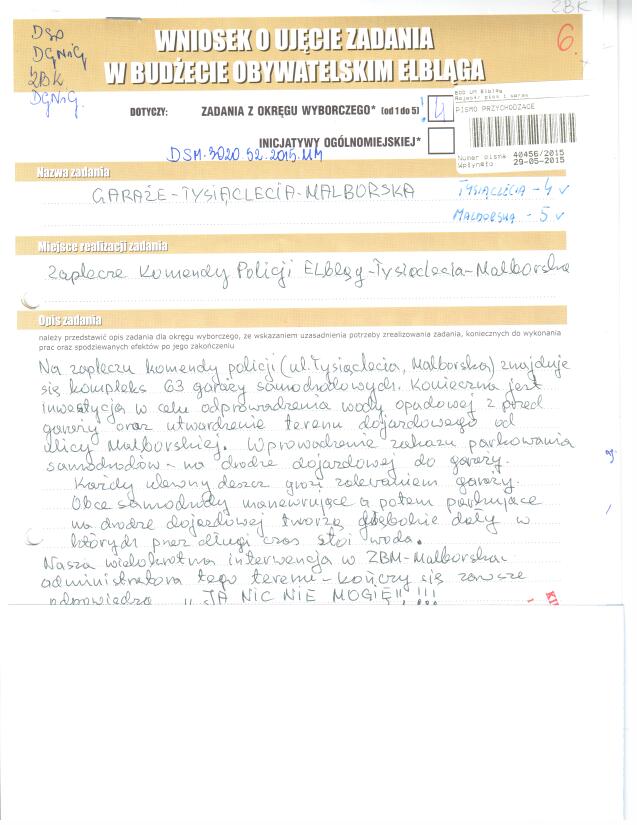 ZBK
DSD
DGNiG
ZBK
DGNiG.
6.
WNIOSEK O UJĘCIE ZADANIA
W BUDŻECIE OBYWATELSKIM ELBLĄGA
DOTYCZY: ZADANIA Z OKRĘGU WYBORCZEGO* (od 1 do 5) 4
INICJATYWY OGÓLNOMIEJSKIEJ*
EOD UM Elbląg
Rejestr pism i spraw
PISMO PRZYCHODZĄCE
Numer pisma 40456/2015
Wpłynęło 29-05-2015
DSM.3020.52.2015.MM
Nazwa zadania
GARAŻE-TYSIĄCLECIA-MALBORSKA
TYSIĄCLECIA - 4 v
MALBORSKA - 5 v
Miejsce realizacji zadania
Zaplecze Komendy Policji Elbląg-Tysiąclecia-Malborska
Opis zadania
należy przedstawić opis zadania dla okręgu wyborczego, ze wskazaniem uzasadnienia potrzeby zrealizowania zadania, koniecznych do wykonania
prac oraz spodziewanych efektów po jego zakończeniu
Na zapleczu komendy policji (ul. Tysiąclecia, Malborska) znajduje
się kompleks 63 garaży samochodowych. Konieczna jest
inwestycja w celu odprowadzenia wody opadowej z przed
garaży oraz utwardzenie terenu dojazdowego od
ulicy Malborskiej. Wprowadzenie zakazu parkowania
samochodów - na drodze dojazdowej do garaży.
Każdy ulewny deszcz grozi zalewaniem garaży.
Obce samochody manewrujące a potem parkujące
na drodze dojazdowej tworzą głębokie doły w
których przez długi czas stoi woda.
Nasza wielokrotna interwencja w ZBM-Malborska
administratora tego terenu - kończy się zawsze
odpowiedzią "JA NIC NIE MOGIĘ" !!!